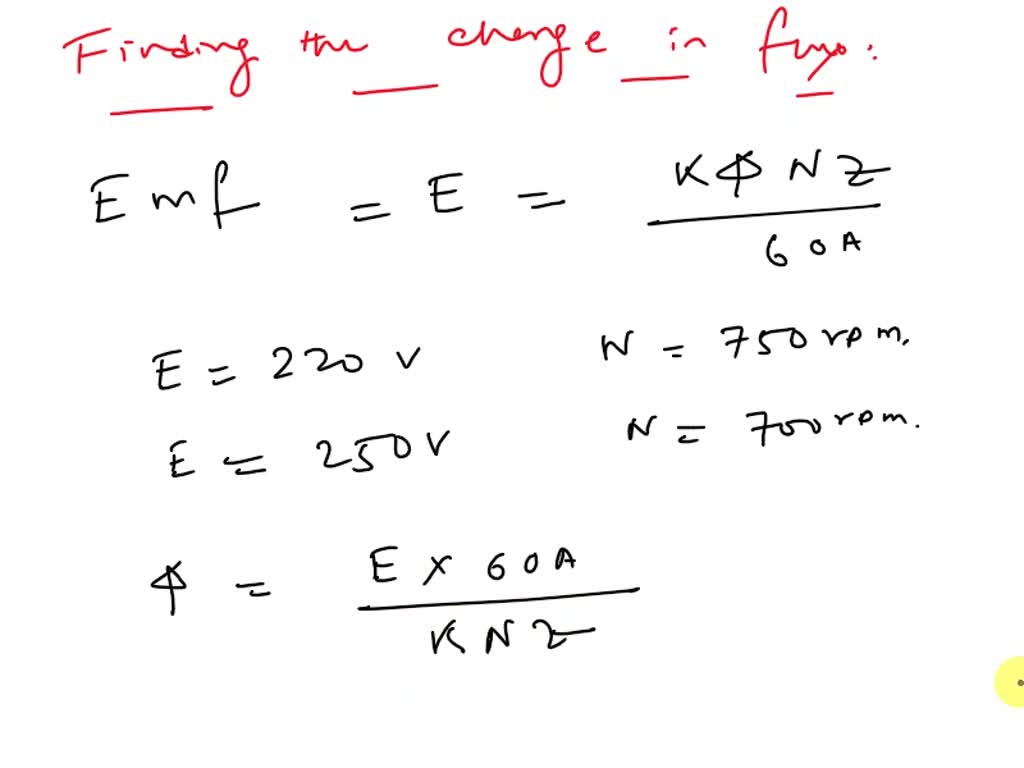 Finding the change in flux:
Emf = E = KΦNZ / 60A
E = 220 V N = 750 rpm.
E = 250 V N = 700 rpm.
Φ = E × 60A / KNZ